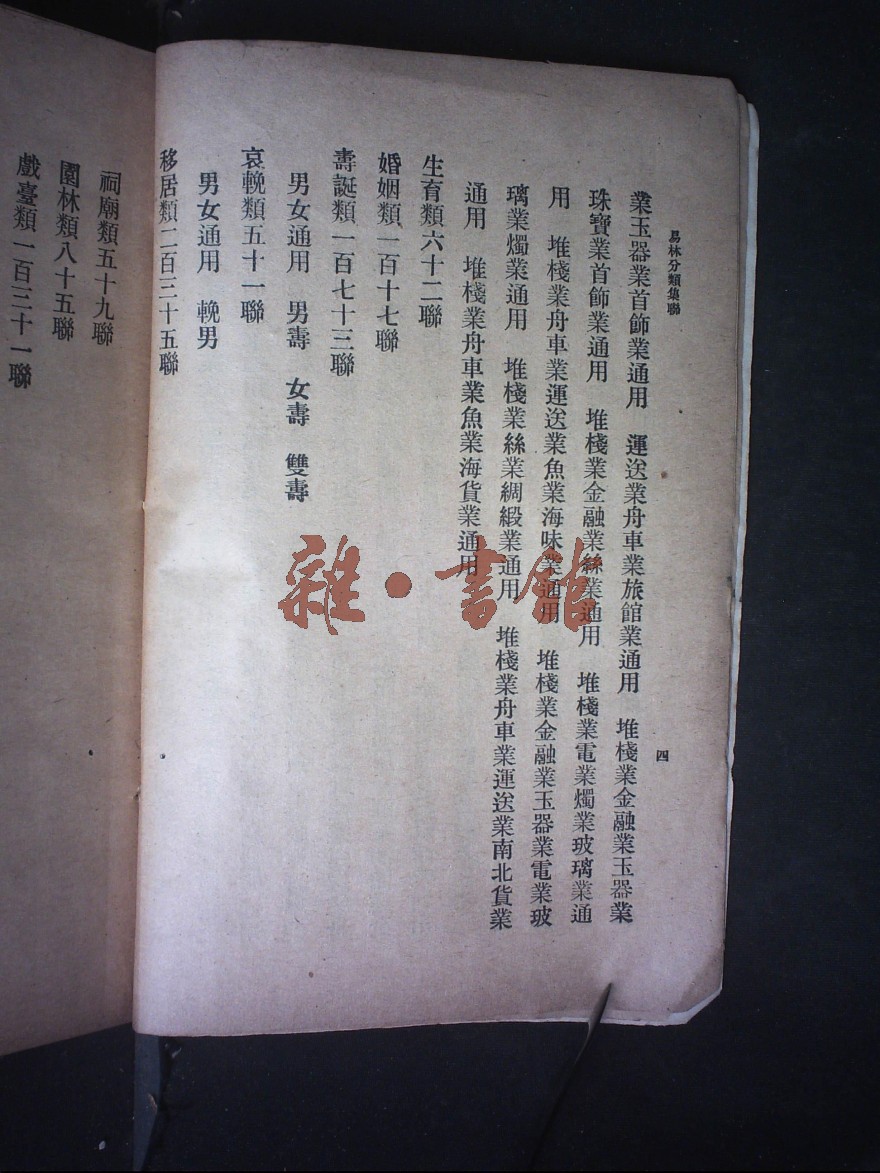 易林分類集聯
四
業玉器業首飾業通用　運送業舟車業旅館業通用　堆棧業金融業玉器業
珠寶業首飾業通用　堆棧業金融業絲業通用　堆棧業電業燭業玻璃業通
用　堆棧業舟車業運送業魚業海味業通用　堆棧業金融業玉器業電業玻
璃業燭業通用　堆棧業絲業綢緞業通用　堆棧業舟車業運送業南北貨業
通用　堆棧業舟車業魚業海貨業通用
生育類六十二聯
婚姻類一百十七聯
壽誕類一百七十三聯
男女通用　男壽　女壽　雙壽
哀輓類五十一聯
男女通用　輓男
移居類二百三十五聯
祠廟類五十九聯
園林類八十五聯
戲臺類一百三十一聯
雜·書館